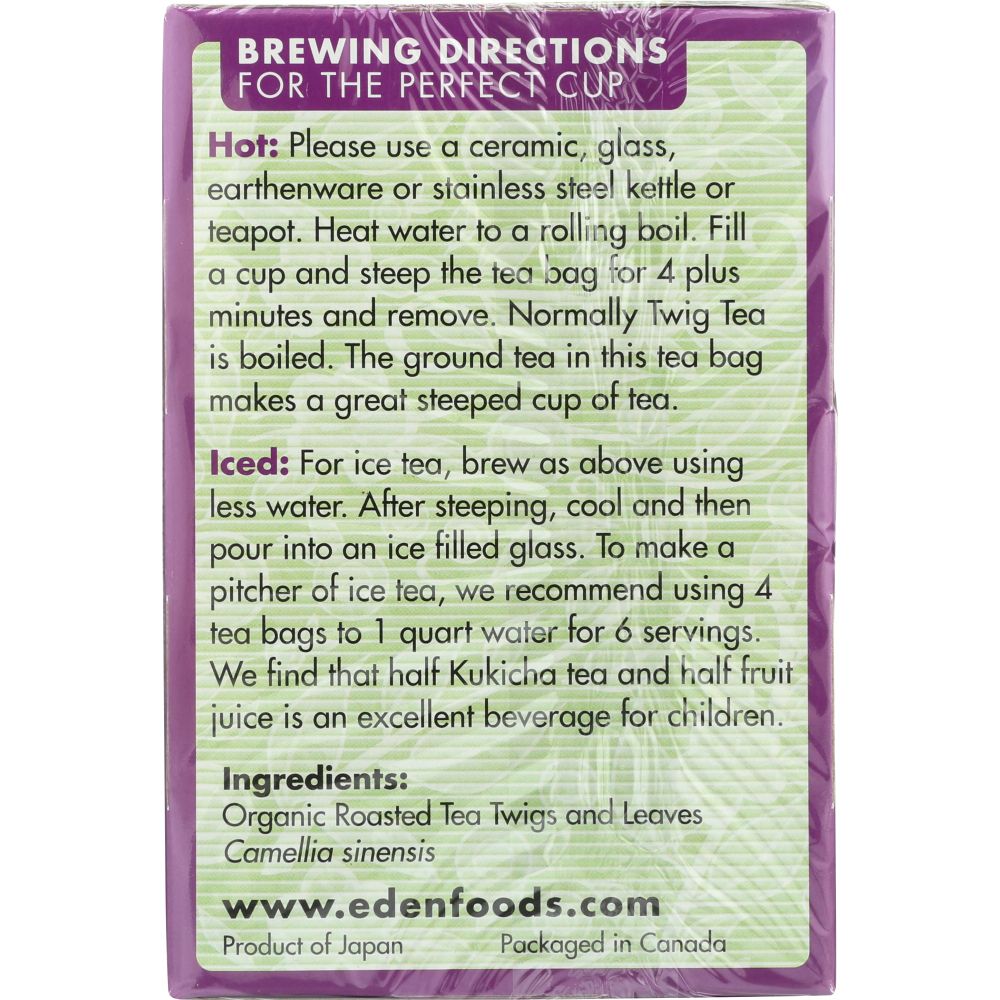 BREWING DIRECTIONS
FOR THE PERFECT CUP
Hot: Please use a ceramic, glass,
earthenware or stainless steel kettle or
teapot. Heat water to a rolling boil. Fill
a cup and steep the tea bag for 4 plus
minutes and remove. Normally Twig Tea
is boiled. The ground tea in this tea bag
makes a great steeped cup of tea.
Iced: For ice tea, brew as above using
less water. After steeping, cool and then
pour into an ice filled glass. To make a
pitcher of ice tea, we recommend using 4
tea bags to 1 quart water for 6 servings.
We find that half Kukicha tea and half fruit
juice is an excellent beverage for children.
Ingredients:
Organic Roasted Tea Twigs and Leaves
Camellia sinensis
www.edenfoods.com
Product of Japan Packaged in Canada